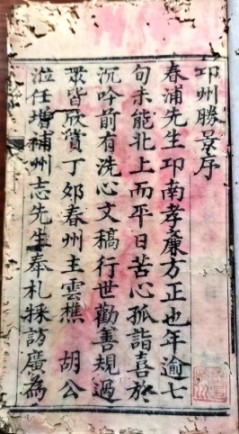 卭州勝景序
春浦先生卭南孝亷方正也年逾七
旬未能北上而平日苦心孤詣喜於
沉吟前有洗心文稿行世勸善規過
衆皆欣賞丁卯春州主雲樵 胡公
涖任增補州志先生奉札採訪廣為